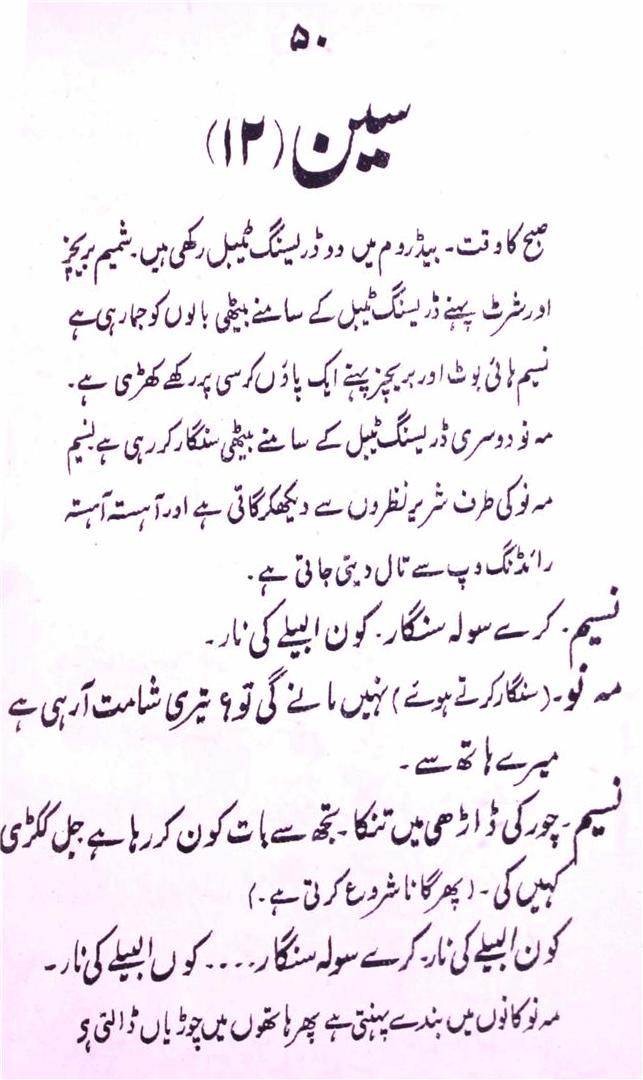 ۵۰
سین (۱۲)
صبح کا وقت۔ بیڈروم میں دو ڈریسنگ ٹیبل رکھی ہیں۔ شمیم بریچز
اور شرٹ پہنے ڈریسنگ ٹیبل کے سامنے بیٹھی بالوں کو جما رہی ہے
نسیم ہائی بوٹ اور بریچز پہنے ایک پاؤں کرسی پر رکھے کھڑی ہے۔
مہ نو دوسری ڈریسنگ ٹیبل کے سامنے بیٹھی سنگار کر رہی ہے نسیم
مہ نو کی طرف شریر نظروں سے دیکھکر گاتی ہے اور آہستہ آہستہ
رائڈنگ وہپ سے تال دیتی جاتی ہے۔
نسیم۔ کرے سولہ سنگار۔ کون البیلے کی نار۔
مہ نو۔ (سنگار کرتے ہوئے) نہیں مانے گی تو؟ تیری شامت آرہی ہے
میرے ہاتھ سے۔
نسیم۔ چور کی ڈاڑھی میں تنکا۔ تجھ سے بات کون کر رہا ہے جل ککڑی
کہیں کی۔ (پھر گانا شروع کرتی ہے۔)
کون البیلے کی نار۔ کرے سولہ سنگار.... کوں البیلے کی نار۔
مہ نو کانوں میں بندے پہنتی ہے پھر ہاتھوں میں چوڑیاں ڈالتی ہے